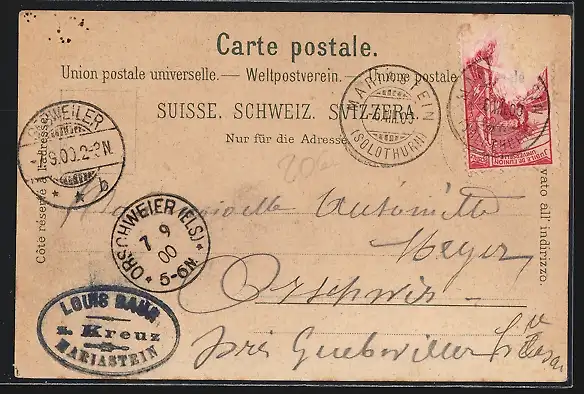 Carte postale.
Union postale universelle. — Weltpostverein. — Unione postale
SUISSE. SCHWEIZ. SVIZZERA.
Nur für die Adresse
Côté réservé à l'adresse.
vato all' indirizzo.
MARIASTEIN
(SOLOTHURN)
JUBILÉ DE L'UNION
9.00.2-3N.
b
Mademoiselle Antoinette
Meyer
ORSCHWEIER (ELS)
7 9
00
5-6N
Orschwir
près Guebwiller
LOUIS BAUR
z. Kreuz
MARIASTEIN